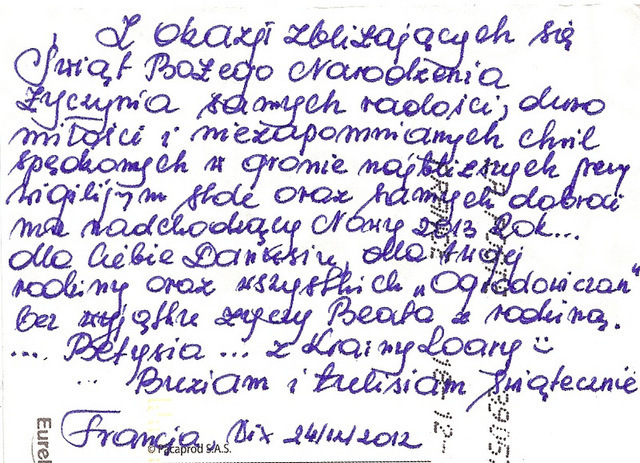 Z okazji zbliżających się
Świąt Bożego Narodzenia
życzynia samych radości, dużo
miłości i niezapomnianych chwil
spędzonych w gronie najbliższych przy
wigilijnym stole oraz samych dobroci
na nadchodzący Nowy 2013 Rok...
dla Ciebie Danusiu, dla twojej
rodziny oraz wszystkich „Ogrodowiczan"
bez wyjątku życzy Beata z rodziną.
.... Betysia ... z Krainy Loary
... Buziam i tulisiam świątecznie
Francja Vix 24/12/2012
© Pacaprod S.A.S.
Eurel